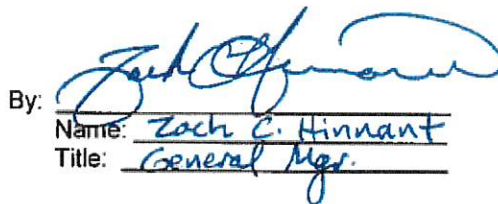 By: Zach C Hinnant
Name: Zach C. Hinnant
Title: General Mgr.